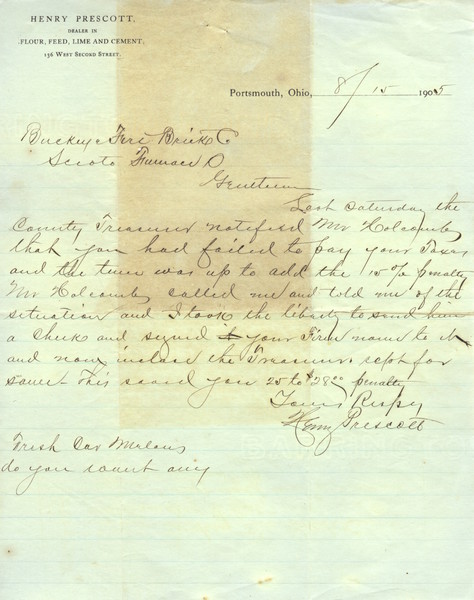 HENRY PRESCOTT,
DEALER IN
FLOUR, FEED, LIME AND CEMENT,
136 WEST SECOND STREET.
Portsmouth, Ohio, 8/15 1905
Buckeye Fire Brick Co
Scioto Furnace O
Gentlemen
Last Saturday the
County Treasurer notified Mr Holcomb
that you had failed to pay your Taxes
and the time was up to add the 15% penalty
Mr Holcomb called me and told me of the
situation and I took the liberty to send him
a check and signed your Firm name to it
and now inclose the Treasurers recpt for
same - This saved you 25 to $28.00 penalty
Yours Respy
Henry Prescott
Fresh Car
do you want any